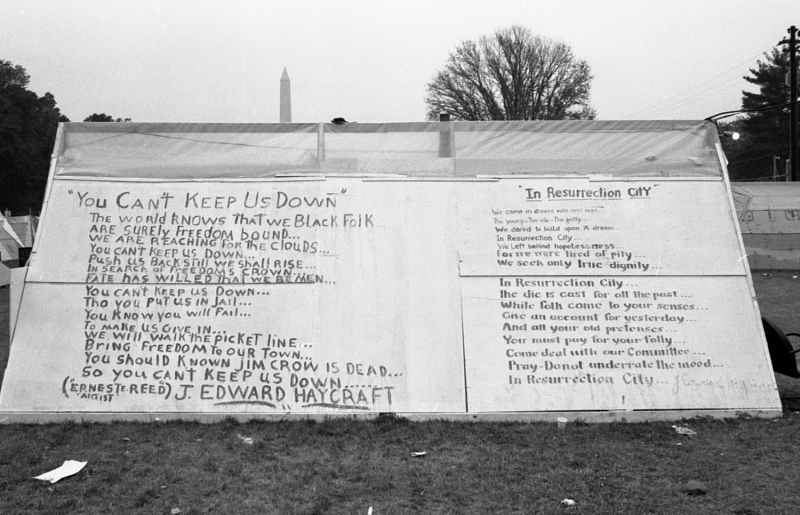 "You Can't Keep Us Down"
The world knows that we Black Folk
are surely freedom bound...
we are reaching for the clouds...
You can't keep us down...
Push us back still we shall rise...
In search of freedom's crown...
Fate has willed that we be men...
You can't keep us down...
Tho you put us in jail...
You know you will fail...
To make us give in...
We will walk the picket line...
Bring freedom to our town...
You should known Jim Crow is dead...
So you can't keep us down.....
("Ernest E. Reed") J. Edward Haycraft
Artist
"In Resurrection City"
We came in droves with our
The young-The old-The
We dared to build upon A dream
In Resurrection City...
We Left behind hopelessness
For we were tired of pity...
We seek only true dignity...
In Resurrection City...
The die is cast for all the past...
While folk come to your senses...
Give an account for yesterday...
And all your old pretenses...
You must pay for your folly...
Come deal with our Committee...
Pray-Do not underrate the mood...
In Resurrection City...